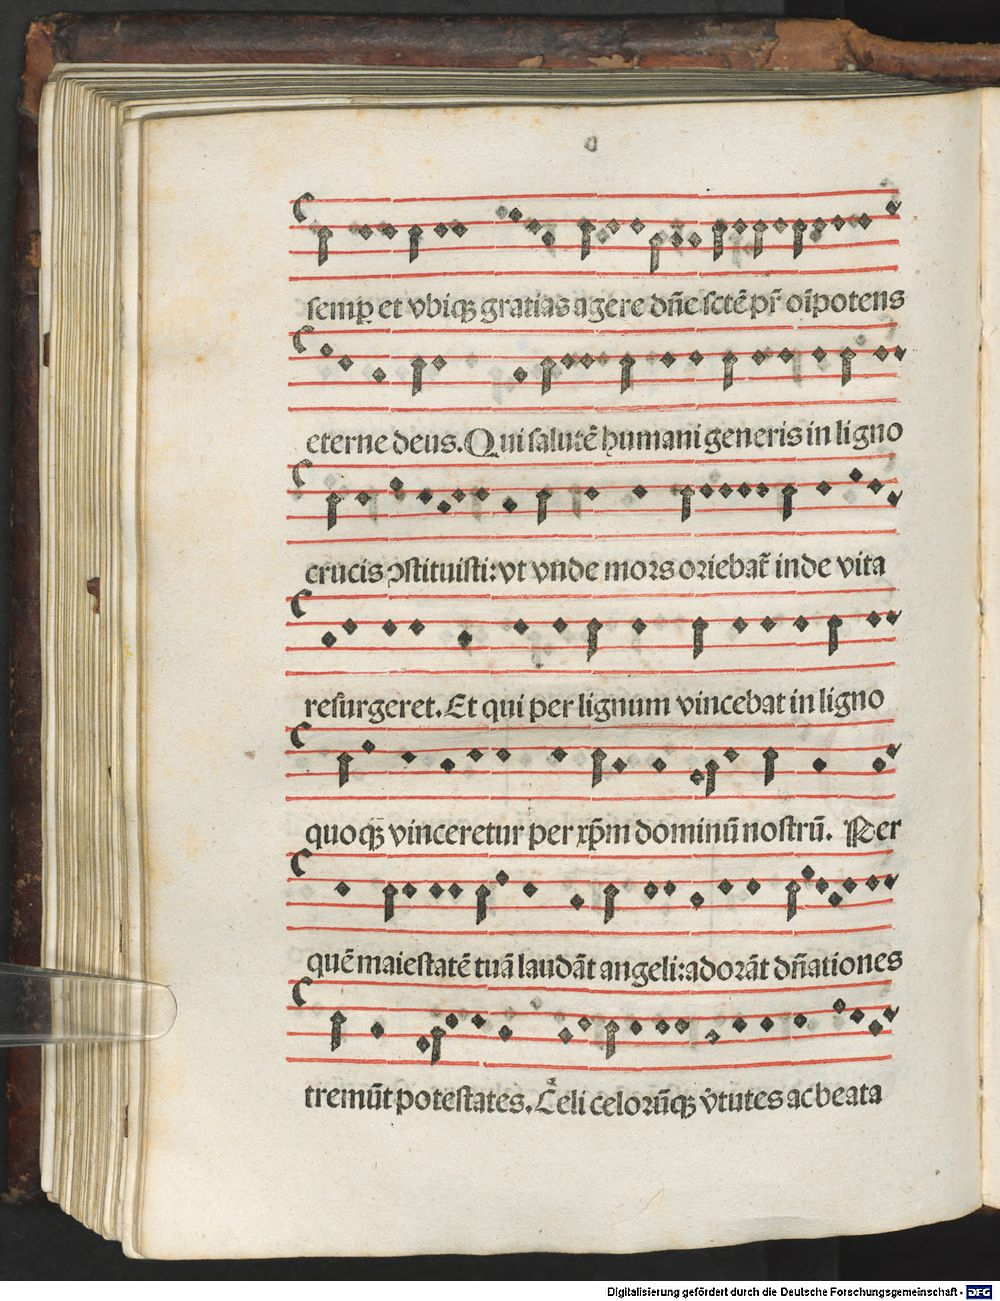 semꝑ et vbiqꝫ gratias agere dn̄e sctē pr̄ oīpotens
eterne deus. Qui salutē humani generis in ligno
crucis ↄstituisti: vt vnde mors oriebat᷑ inde vita
resurgeret. Et qui per lignum vincebat in ligno
quoqꝫ vinceretur per xp̄m dominū nostrū. Per
quē maiestatē tuā laudāt angeli: adorāt dn̄ationes
tremūt potestates. Celi celorūqꝫ v̄tutes ac beata
Digitalisierung gefördert durch die Deutsche Forschungsgemeinschaft - DFG